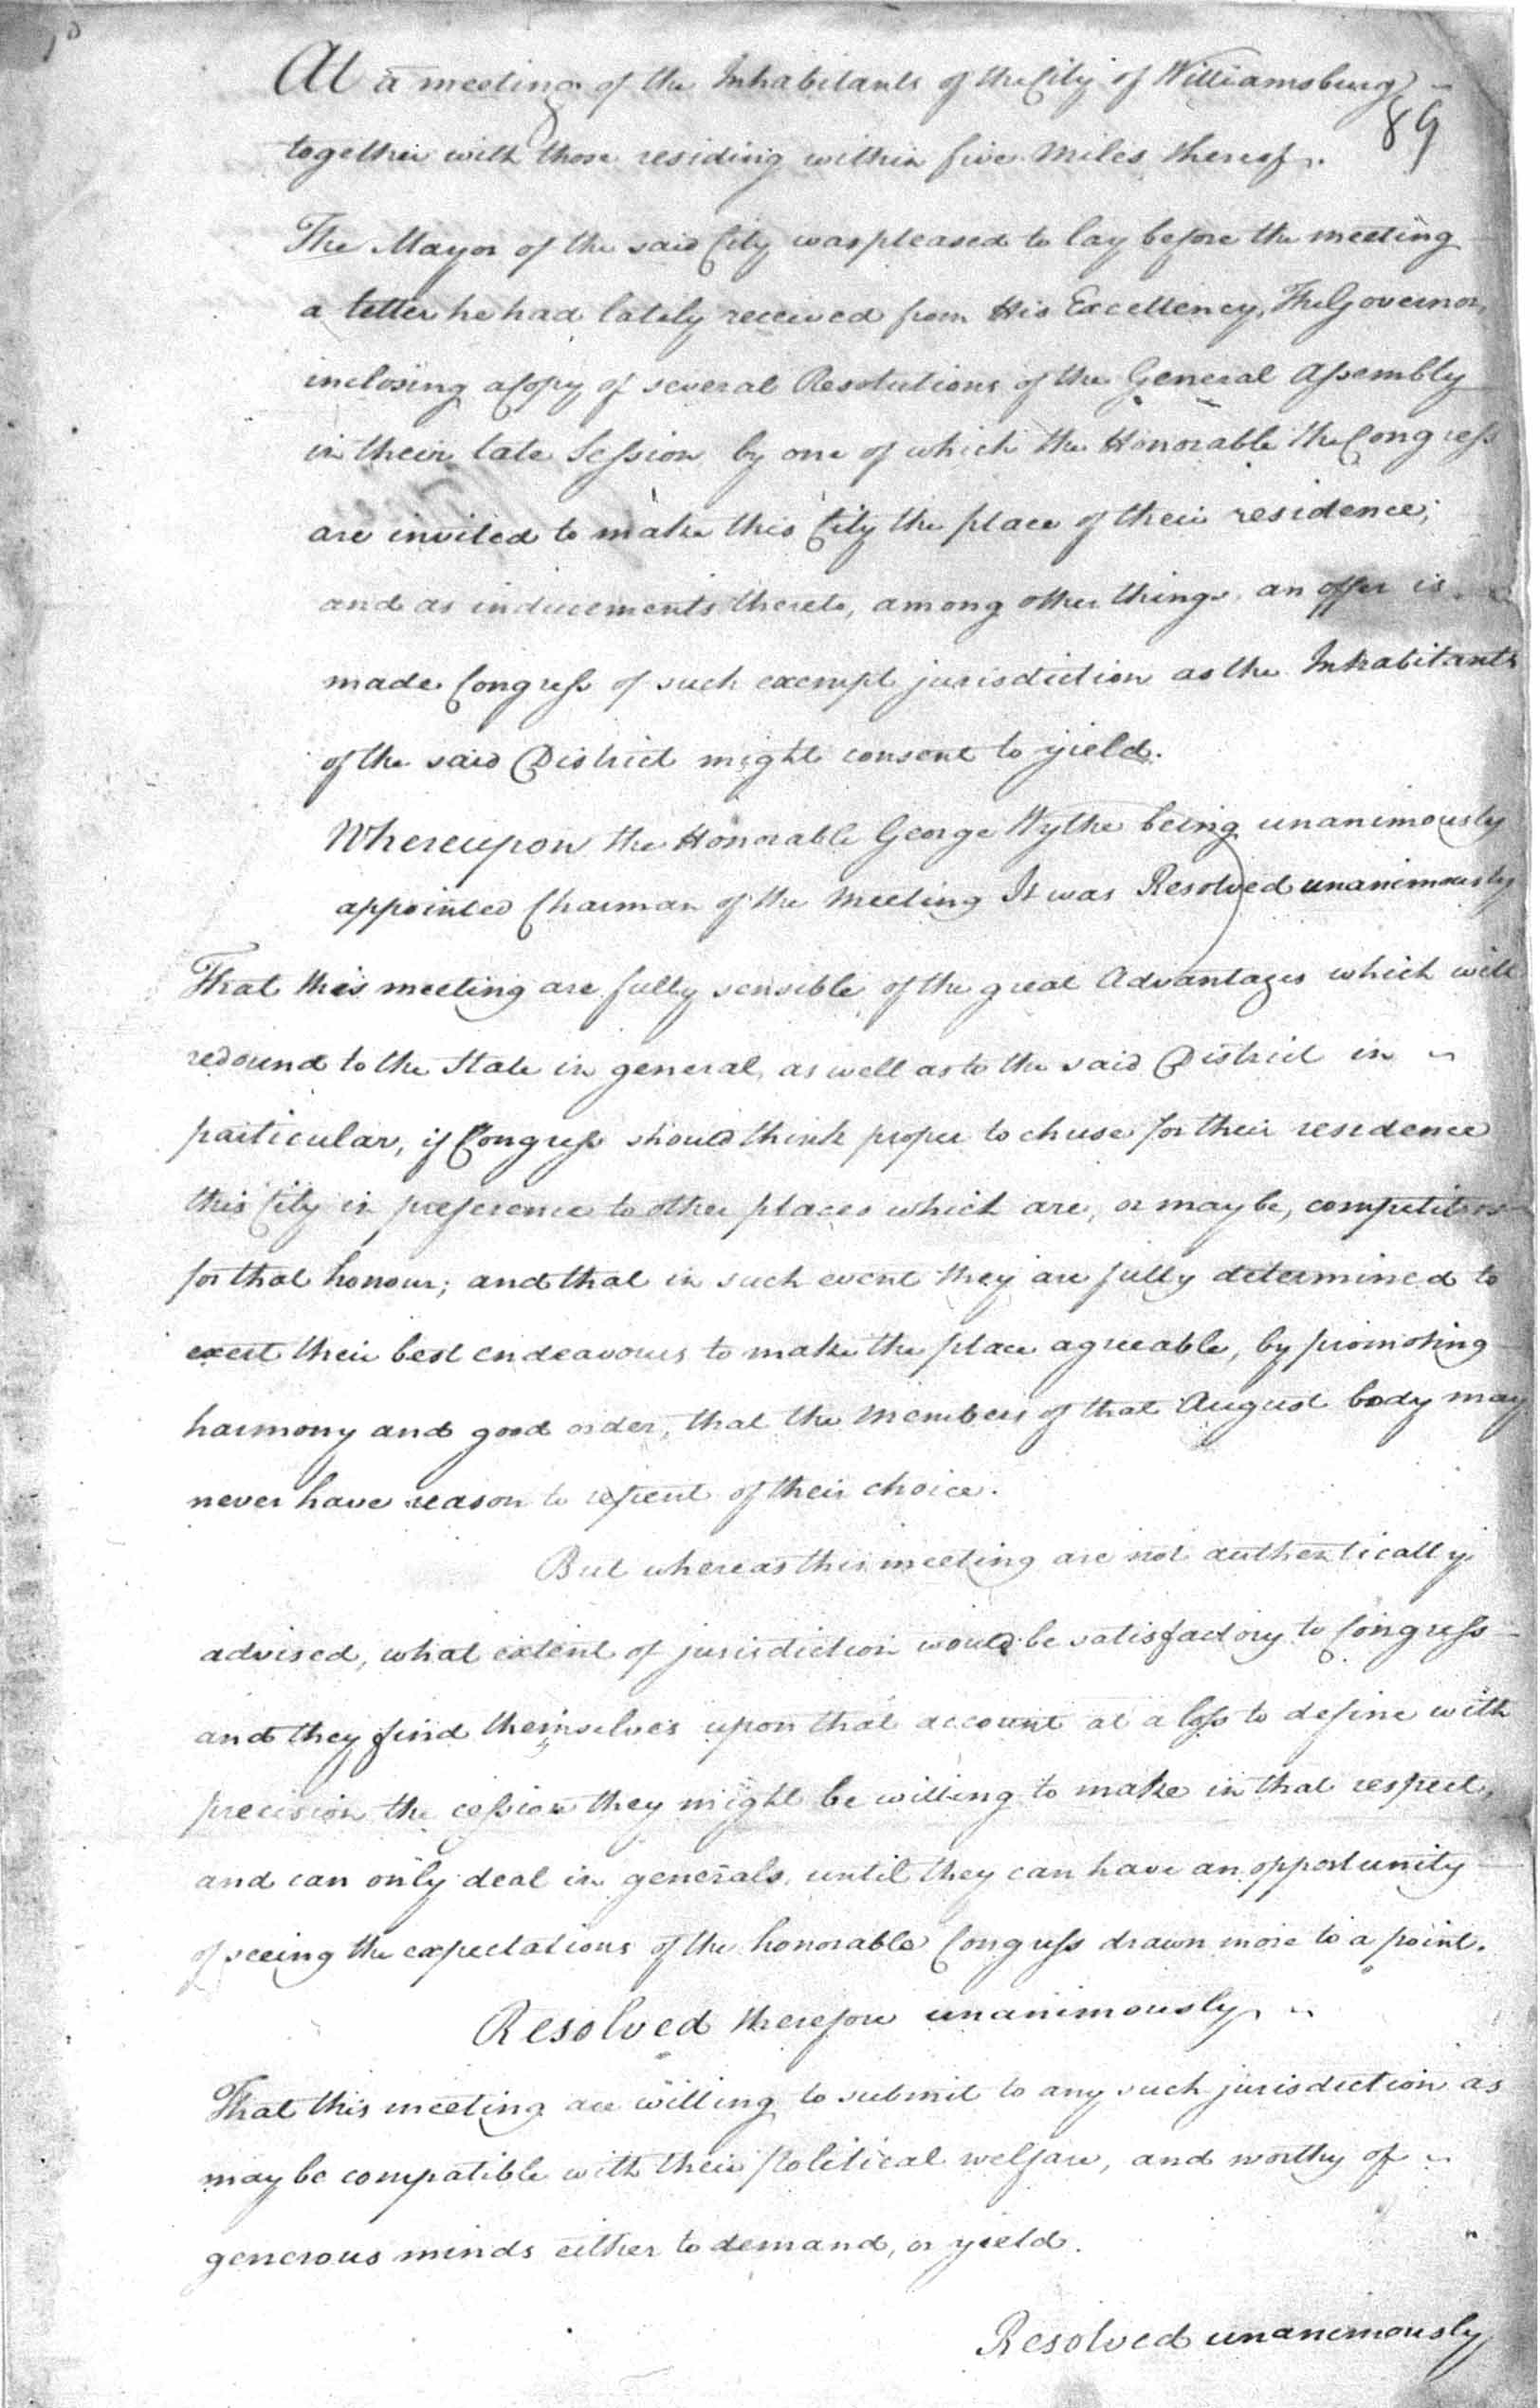 At a meeting of the Inhabitants of the City of Williamsburg
89
together with those residing within five Miles thereof.
The Mayor of the said City was pleased to lay before the meeting
a letter he had lately received from His Excellency, The Governor,
inclosing a Copy of several Resolutions of the General Assembly
in their late Session by one of which the Honorable the Congress
are invited to make this City the place of their residence;
and as inducements thereto, among other things, an offer is
made Congress of such exempt jurisdiction as the Inhabitants
of the said District might consent to yield.
Whereupon the Honorable George Wythe being unanimously
appointed Chairman of the Meeting It was Resolved unanimously
That this meeting are fully sensible of the great Advantages which will
redound to the State in general, as well as to the said District in
particular, if Congress should think proper to chuse for their residence
this City in preference to other places which are, or may be, competitors
for that honour; and that in such event they are fully determined to
exert their best endeavours to make the place agreeable, by promoting
harmony and good order, that the Members of that August body may
never have reason to repent of their choice.
But whereas this meeting are not authentically
advised, what extent of jurisdiction would be satisfactory to Congress
and they find themselves upon that account at a loss to define with
precision the cession they might be willing to make in that respect,
and can only deal in generals, until they can have an opportunity
of seeing the expectations of the honorable Congress drawn more to a point.
Resolved therefore unanimously
That this meeting are willing to submit to any such jurisdiction as
may be compatible with their political welfare, and worthy of
generous minds either to demand, or yield.
Resolved unanimously